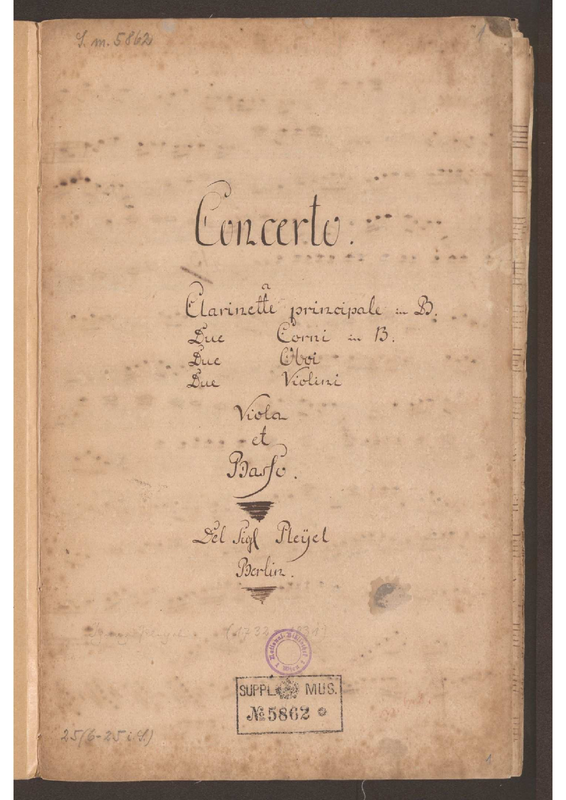 S. m. 5862
1
Concerto.
a
Clarinette principale in B.
Due Corni in B.
Due Oboi
Due Violini
Viola
et
Basso.
Del Sigl Pleÿel
Berlin.
National-Bibliothek
Wien
SUPPL. MUS.
№ 5862
25(6-25i(1)
1